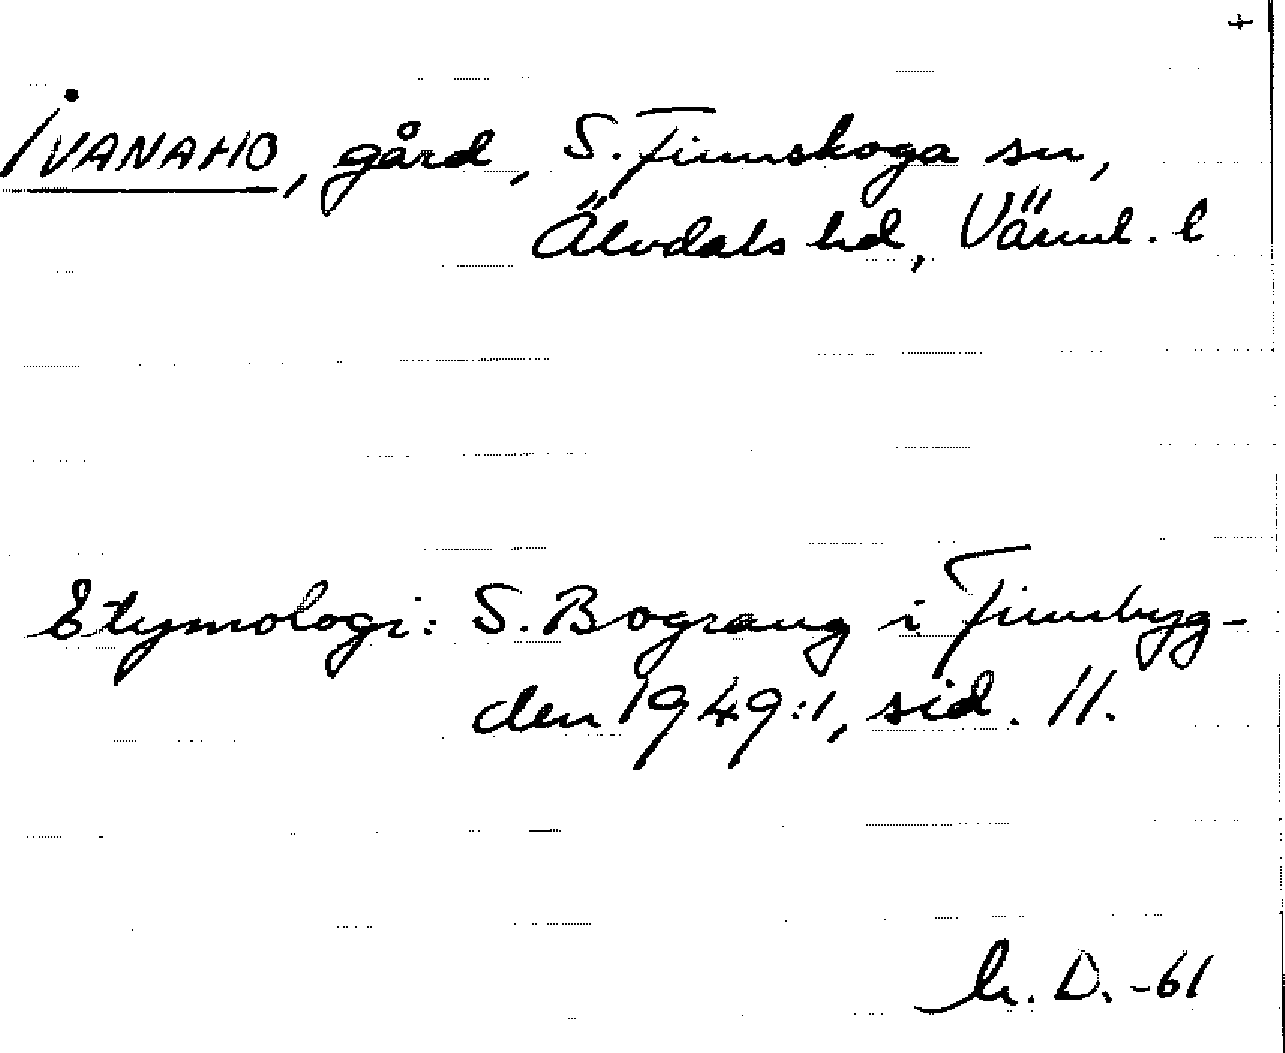 IVANAHO, gård, S. Finnskoga sn,
Älvdals hd, Värml. l
Etymologi: S. Bograng i Finnbyg-
den 1949:1, sid. 11.
D. -61